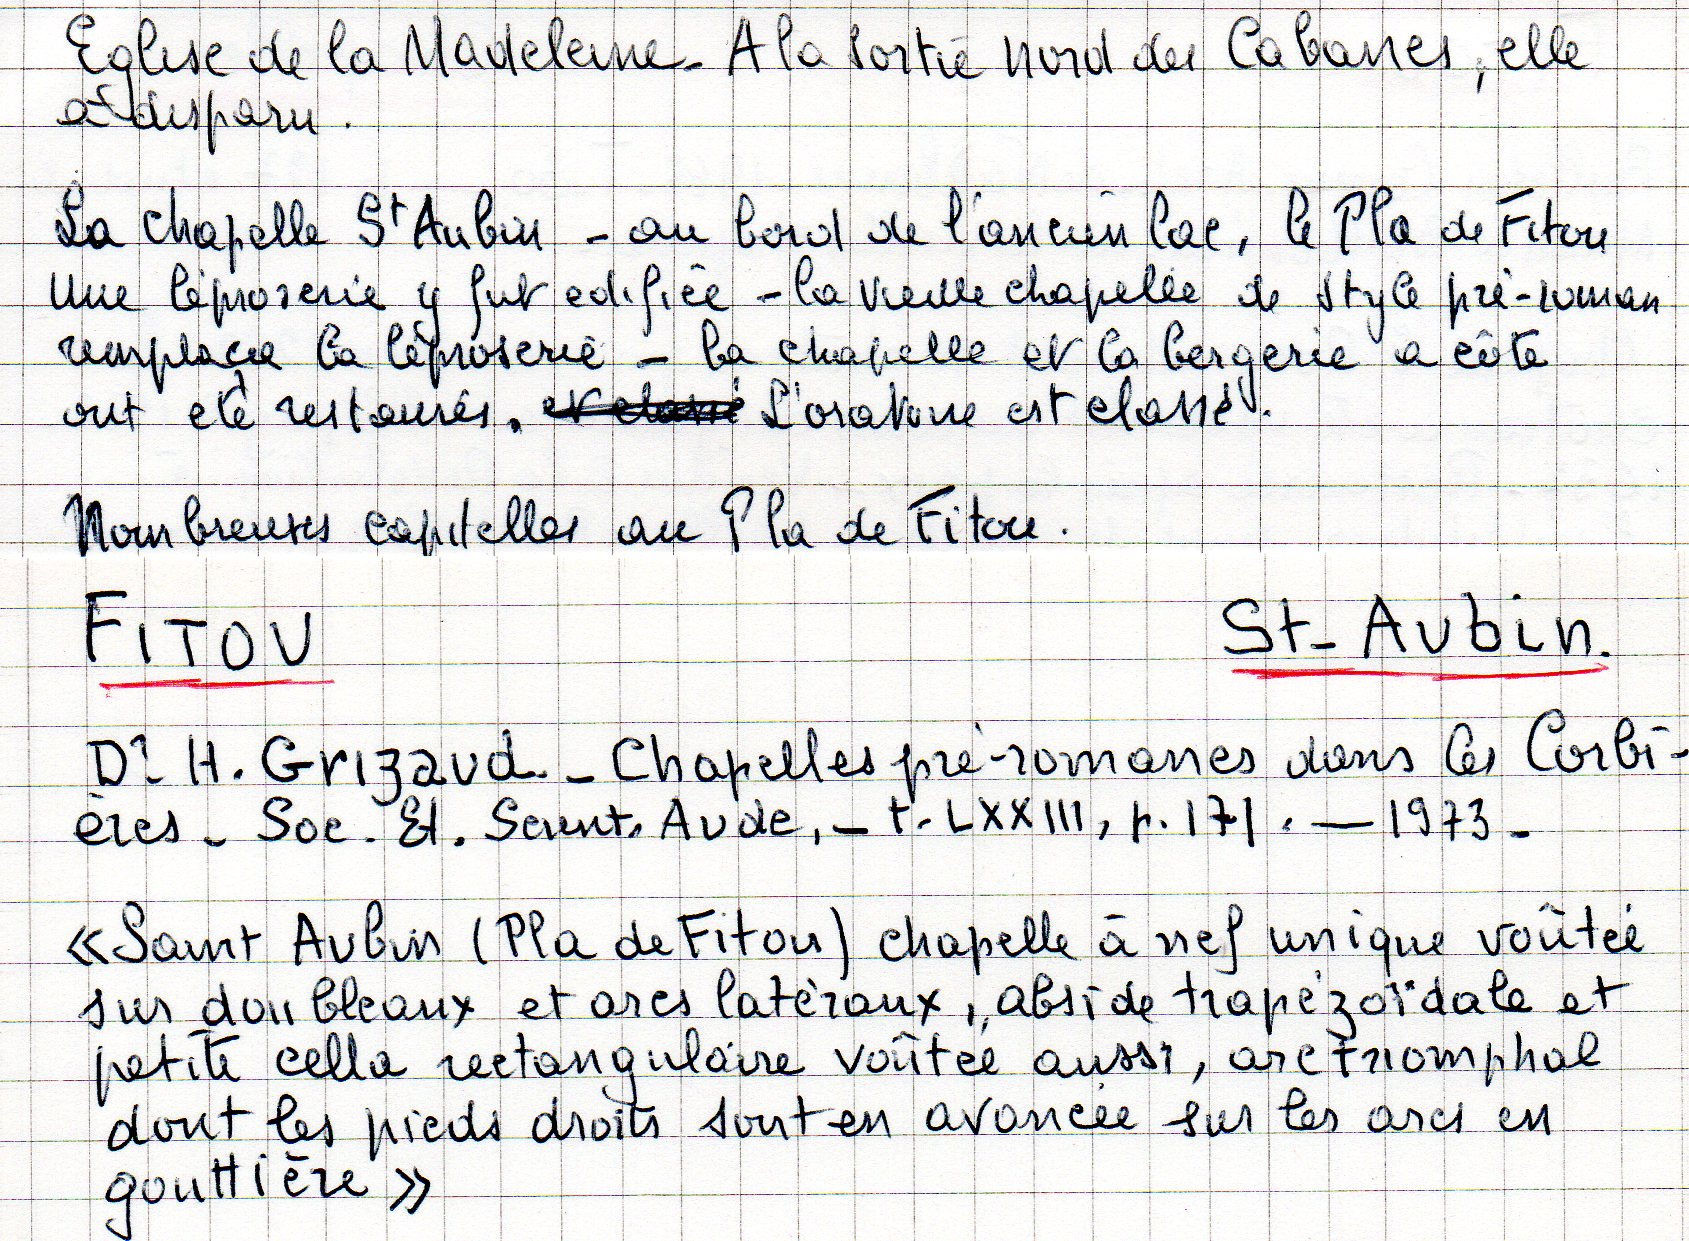 Eglise de la Madeleine - A la sortie nord des Cabanes, elle
a disparu.
La chapelle St Aubin - au bord de l'ancien lac, le Pla de Fitou
Une léproserie y fut edifiée - la vieille chapelle de style pré-roman
remplaça la léproserie - la chapelle et la bergerie a côté
ont eté restaurés. et classé L'oratoire est classé.
Nombreuses capitelles au Pla de Fitou.
FITOU St-Aubin.
Dr H. Grizaud. - Chapelles pré-romanes dans les Corbi-
ères - Soc. Et. Scient. Aude, - t. LXXIII, p. 171. — 1973 -
«Saint Aubin (Pla de Fitou) chapelle à nef unique voûtée
sur doubleaux et arcs latéraux, abside trapézoïdale et
petite cella rectangulaire voûtée aussi, arc triomphal
dont les pieds droits sont en avancée sur les arcs en
gouttière»